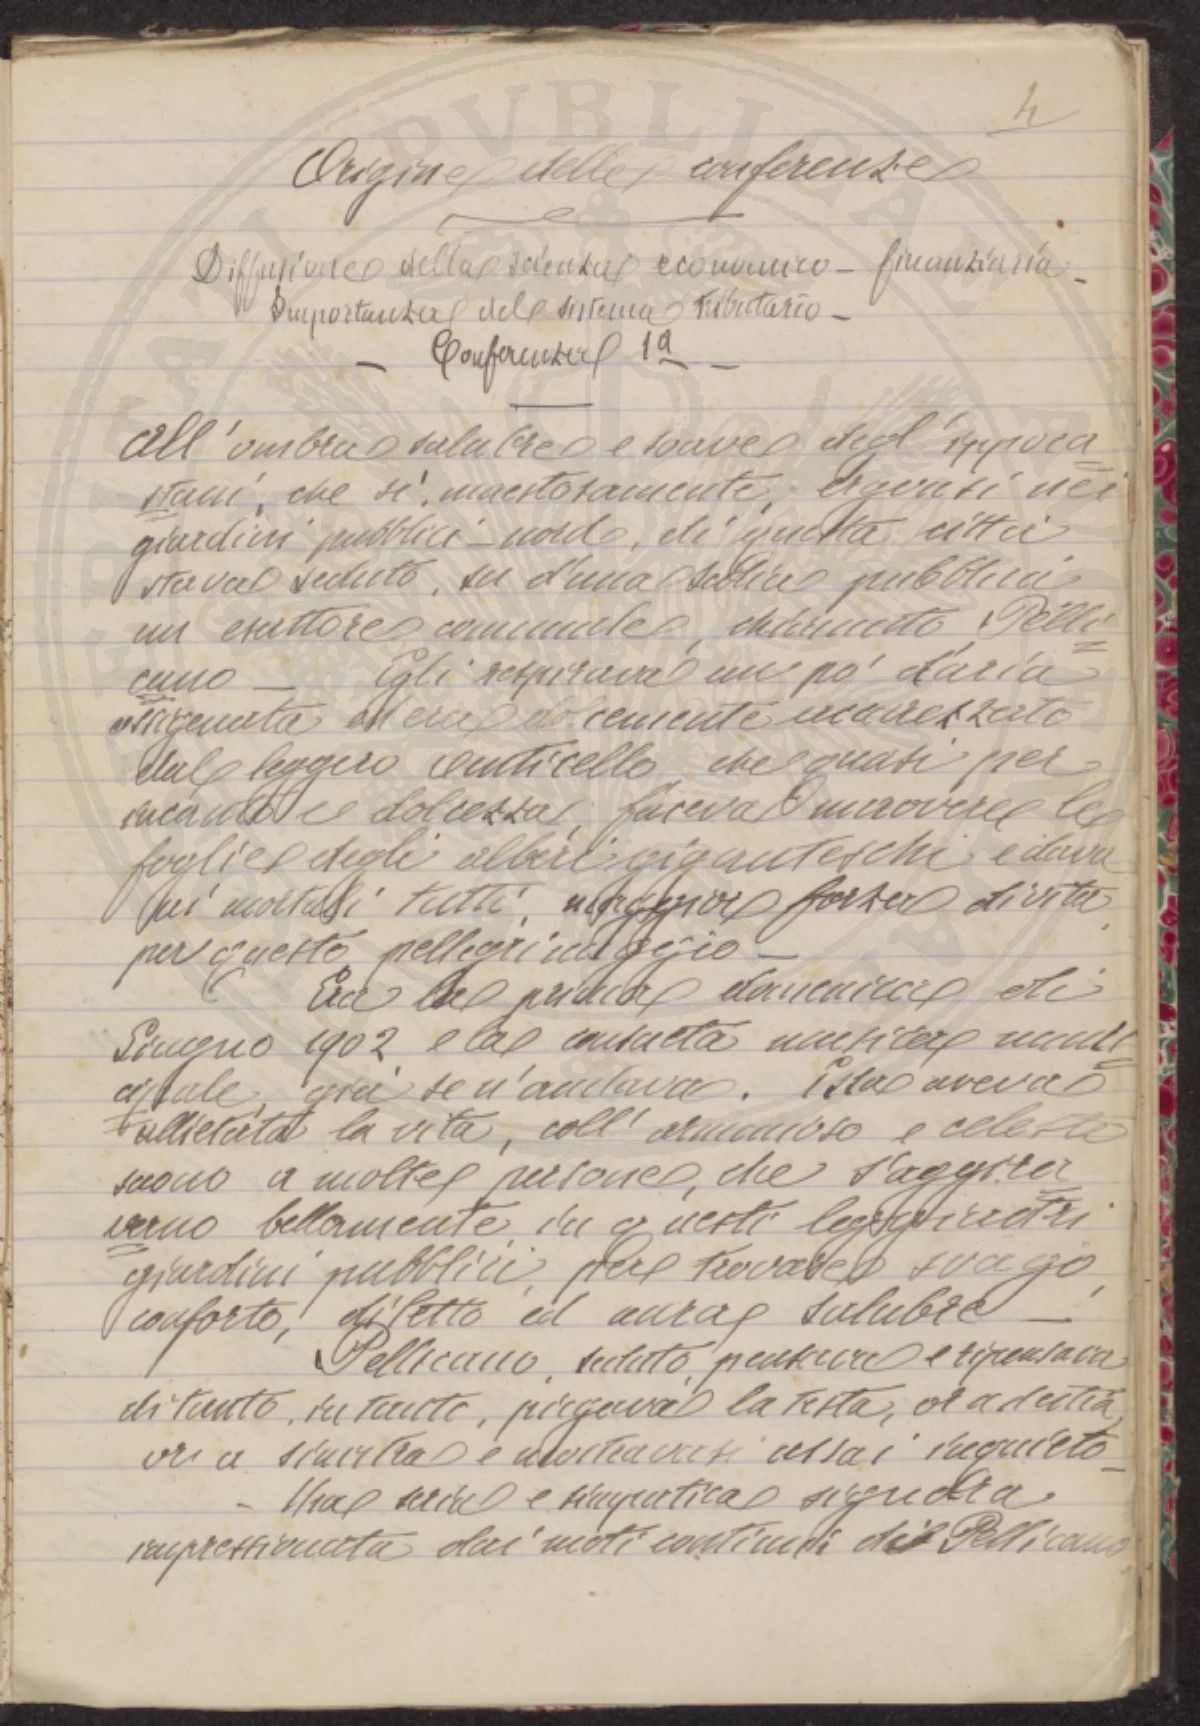 4
Origine delle conferenze
Diffusione della scienza economico - finanziaria -
Importanza del sistema tributario -
- Conferenza 1a -
All'ombra salubre e soave degl'ippoca
stani, che sì maestosamente, ergonsi nei
giardini pubblici - nord, di questa città
stava seduto, su d'una sedia pubblica
un esattore comunale, chiamato Pelli
cano - Egli respirava un po' d'aria
ossigenata ed era dolcemente accarezzato
dal leggero venticello, che quasi per
incanto e dolcezza, faceva muovere le
foglie degli alberi giganteschi e dava
ai mortali tutti, maggiore forza di vita,
per questo pellegrinaggio -
Era la prima domenica di
Giugno 1902 e la consueta musica muni
cipale, già se n'andava. Essa aveva
allietata la vita, coll'armonioso e celeste
suono a molte persone, che s'aggira
vano bellamente, in questi leggiadri
giardini pubblici, per trovare svago,
conforto, diletto ed aura salubre -
Pellicano, seduto, pensava e ripensava
di tanto, in tanto, piegava la testa, or a destra,
or a sinistra e mostravasi assai inquieto -
- Una seria e simpatica signora
impressionata dai moti continui di Pellicano